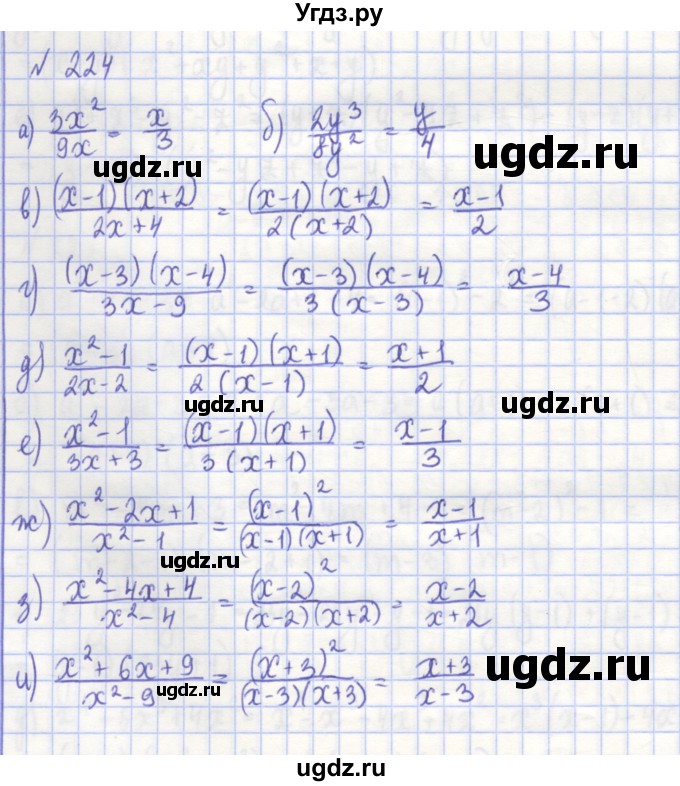 Угдз.ру
№ 224
а) 3x²/9x = x/3   б) 2y³/8y² = y/4
ugdz.ru ugdz.ru
в) (x-1)(x+2)/2x+4 = (x-1)(x+2)/2(x+2) = x-1/2
г) (x-3)(x-4)/3x-9 = (x-3)(x-4)/3(x-3) = x-4/3
д) x²-1/2x-2 = (x-1)(x+1)/2(x-1) = x+1/2
ugdz.ru ugdz.ru
е) x²-1/3x+3 = (x-1)(x+1)/3(x+1) = x-1/3
ж) x²-2x+1/x²-1 = (x-1)²/(x-1)(x+1) = x-1/x+1
ugdz.ru
з) x²-4x+4/x²-4 = (x-2)²/(x-2)(x+2) = x-2/x+2
и) x²+6x+9/x²-9 = (x+3)²/(x-3)(x+3) = x+3/x-3
ugdz.ru ugdz.ru
ugdz.ru